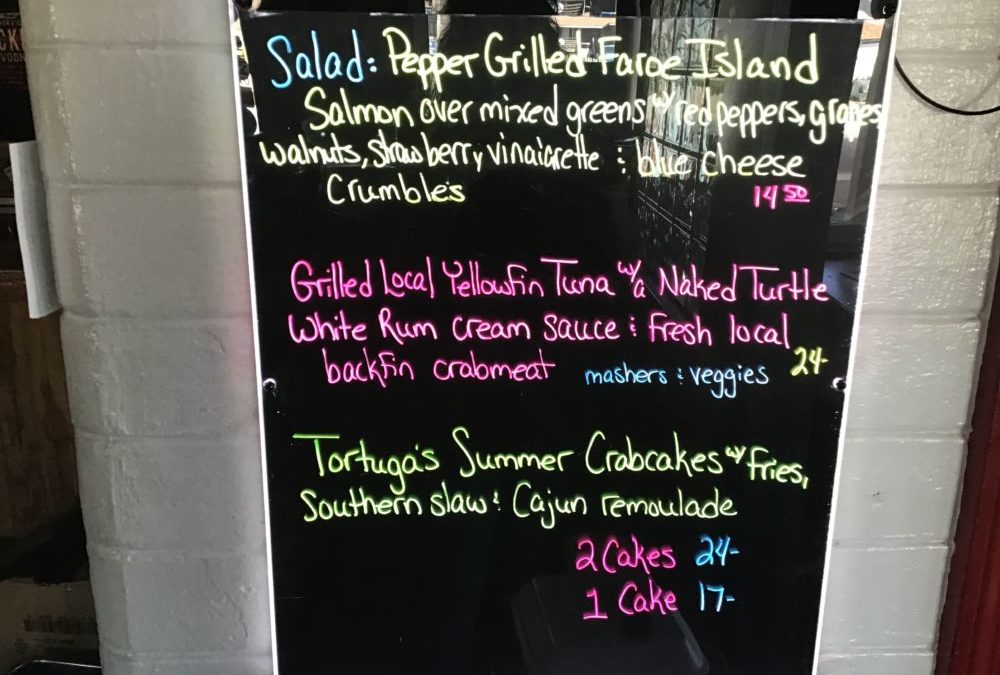 Salad: Pepper Grilled Faroe Island
Salmon over mixed greens w/ red peppers, grapes
walnuts, strawberry vinaigrette & blue cheese
Crumbles 14 50
Grilled Local Yellowfin Tuna w/a Naked Turtle
White Rum cream sauce & Fresh local
backfin crabmeat mashers & veggies 24-
Tortuga's Summer Crabcakes w/ fries,
Southern slaw & Cajun remoulade
2 Cakes 24-
1 Cake 17-